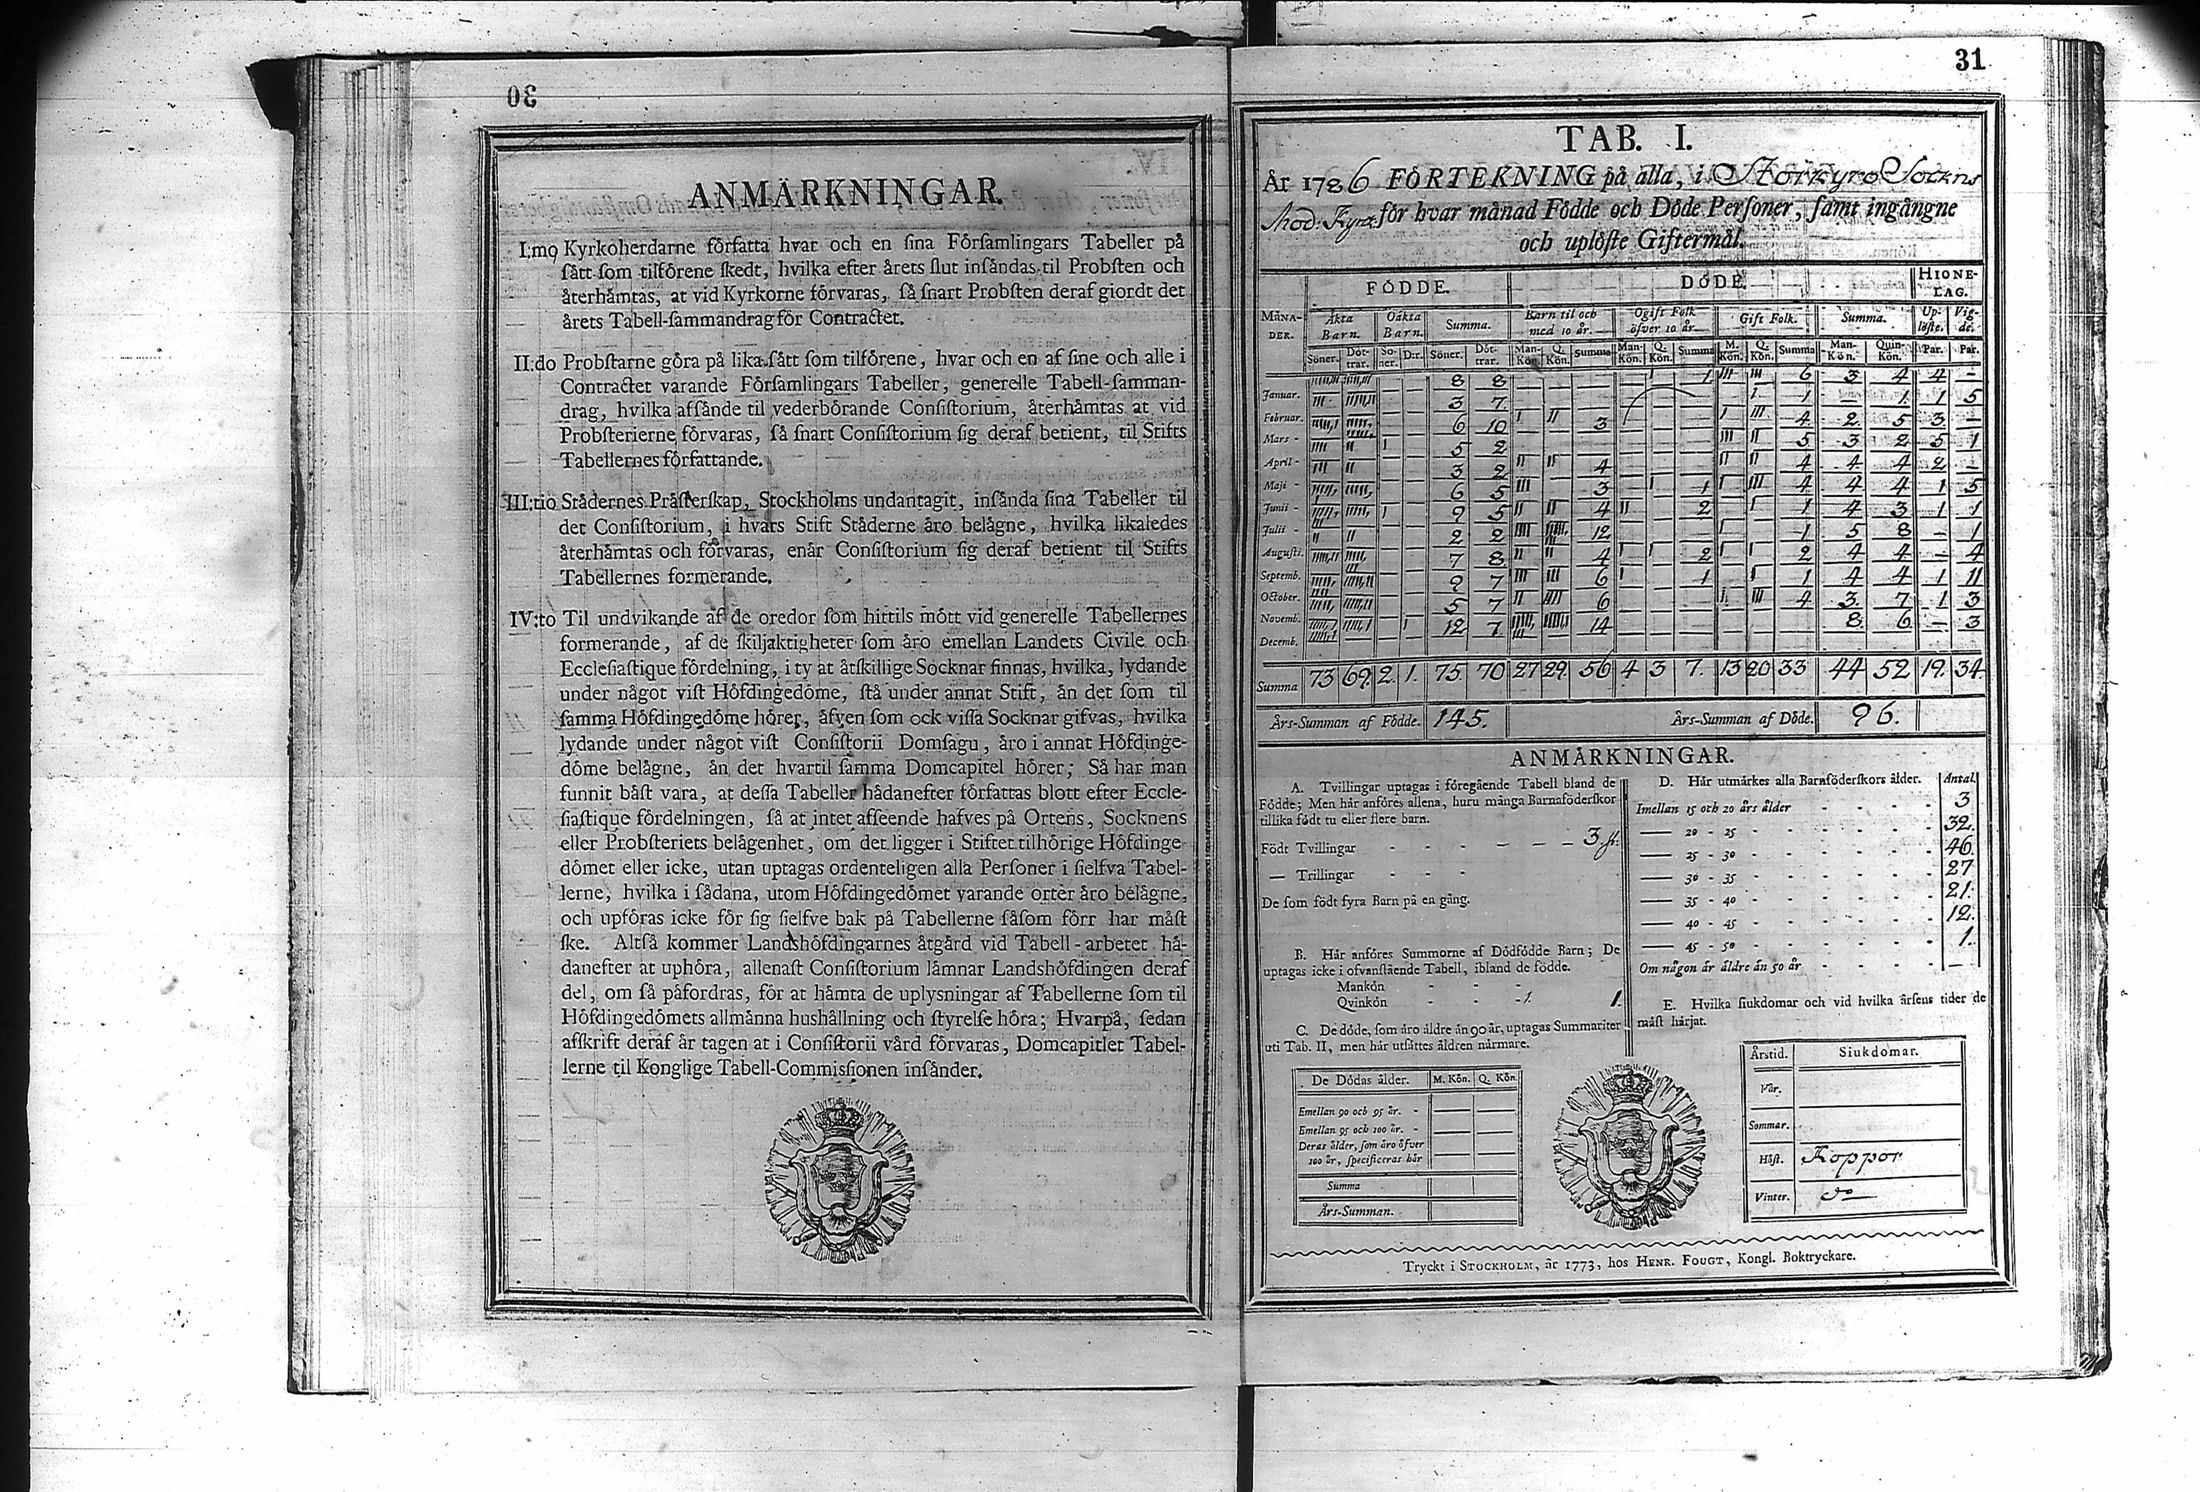 30
ANMÄRKNINGAR.
I:mo Kyrkoherdarne författa hvar och en ſina Förſamlingars Tabeller på
ſätt ſom tilförene ſkedt, hvilka efter årets ſlut inſändas til Probſten och
återhämtas, at vid Kyrkorne förvaras, ſå ſnart Probſten deraf giordt det
årets Tabell-ſammandrag för Contractet.
II:do Probſtarne göra på lika ſätt ſom tilförene, hvar och en af ſine och alle i
Contractet varande Förſamlingars Tabeller, generelle Tabell-ſamman-
drag, hvilka afſände til vederbörande Conſiſtorium, återhämtas at vid
Probſterierne förvaras, ſå ſnart Conſiſtorium ſig deraf betient, til Stifts
Tabellernes författande.
III:tio Städernes Präſterſkap, Stockholms undantagit, inſända ſina Tabeller til
det Conſiſtorium, i hvars Stift Städerne äro belägne, hvilka likaledes
återhämtas och förvaras, enär Conſiſtorium ſig deraf betient til Stifts
Tabellernes formerande.
IV:to Til undvikande af de oredor ſom hittils mött vid generelle Tabellernes
formerande, af de ſkiljaktigheter ſom äro emellan Landets Civile och
Eccleſiaſtique fördelning, i ty at åtſkillige Socknar finnas, hvilka, lydande
under något viſt Höfdingedöme, ſtå under annat Stift, än det ſom til
ſamma Höfdingedöme hörer, äfven ſom ock viſſa Socknar gifvas, hvilka
lydande under något viſt Conſiſtorii Domſagu, äro i annat Höfdinge-
döme belägne, än det hvartil ſamma Domcapitel hörer; Så har man
funnit bäſt vara, at deſſa Tabeller hädanefter författas blott efter Eccle-
ſiaſtique fördelningen, ſå at intet afſeende hafves på Ortens, Socknens
eller Probſteriets belägenhet, om det ligger i Stiftet tilhörige Höfdinge-
dömet eller icke, utan uptagas ordenteligen alla Perſoner i ſielfva Tabel-
lerne, hvilka i ſådana, utom Höfdingedömet varande orter äro belägne,
och upföras icke för ſig ſielfve bak på Tabellerne ſåſom förr har måſt
ſke. Altſå kommer Landshöfdingarnes åtgärd vid Tabell-arbetet hä-
danefter at uphöra, allenaſt Conſiſtorium lämnar Landshöfdingen deraf
del, om ſå påfordras, för at hämta de uplysningar af Tabellerne ſom til
Höfdingedömets allmänna hushållning och ſtyrelſe höra; Hvarpå, ſedan
afſkrift deraf är tagen at i Conſiſtorii vård förvaras, Domcapitlet Tabel-
lerne til Konglige Tabell-Commiſſionen inſänder.
31
TAB. I.
År 1786 FÖRTEKNING på alla, i Storkyro Sockns
Mod: Kyrka för hvar månad Födde och Döde Perſoner, ſamt ingångne
och uplöſte Giftermål.
FÖDDE. DÖDE. HIONE-LAG.
MÅNA-DER. Äkta Barn. Oäkta Barn. Summa. Barn til och med 10 år. Ogift Folk öfver 10 år Gift Folk. Summa. Up-löſte. Vig-de.
Söner. Döt-trar. So-ner. D:r. Söner. Döt-trar. Man-Kön. Q. Kön. Summa Man-Kön. Q. Kön. Summa M. Kön. Q. Kön. Summa Man-Kön. Quin-Kön. Par. Par.
Januar. 8 8 1 6 3 4 4 —
Februar. 3 7 1 — 1 1 5
Mars - 6 10 3 4 2 5 3 —
April - 5 2 5 3 2 5 1
Maji - 3 2 4 4 4 4 2 —
Junii - 6 5 3 1 4 4 4 1 5
Julii - 9 5 4 2 1 4 3 1 1
Auguſti. 2 2 12 1 5 8 — 1
Septemb. 7 8 4 2 2 4 4 — 4
October. 9 7 6 1 1 4 4 1 11
Novemb. 5 7 6 4 3 7 1 3
Decemb. 12 7 14 8 6 — 3
Summa 73 69 2 1 75 70 27 29 56 4 3 7 13 20 33 44 52 19 34
Års-Summan af Födde. 145. Års-Summan af Döde. 96.
ANMÄRKNINGAR.
A. Tvillingar uptagas i föregående Tabell bland de
Födde; Men här anföres allena, huru många Barnaföderſkor
tillika födt tu eller flere barn.
Födt Tvillingar - - - 3 ſt.
— Trillingar - - -
De ſom födt fyra Barn på en gång.
B. Här anföres Summorne af Dödfödde Barn; De
uptagas icke i ofvanſtående Tabell, ibland de födde.
Mankön - - -
Qvinkön - - - 1. 1.
C. De döde, ſom äro äldre än 90 år, uptagas Summariter
uti Tab. II, men här utſättes åldren närmare.
De Dödas ålder. M. Kön. Q. Kön.
Emellan 90 och 95 år. - — —
Emellan 95 och 100 år. - — —
Deras ålder, ſom äro öfver
100 år, ſpecificeras här — —
Summa
Års-Summan.
D. Här utmärkes alla Barnföderſkors ålder. Antal.
Imellan 15 och 20 års ålder - - 3
— 20 - 25 - - 32.
— 25 - 30 - - 46
— 30 - 35 - - 27
— 35 - 40 - - 21.
— 40 - 45 - - 12.
— 45 - 50 - - 1.
Om någon är äldre än 50 år - - —
E. Hvilka ſiukdomar och vid hvilka årſens tider de
mäſt härjat.
Årstid. Siukdomar.
Vår. —
Sommar. —
Höſt. Koppor
Vinter. do
Tryckt i STOCKHOLM, år 1773, hos HENR. FOUGT, Kongl. Boktryckare.